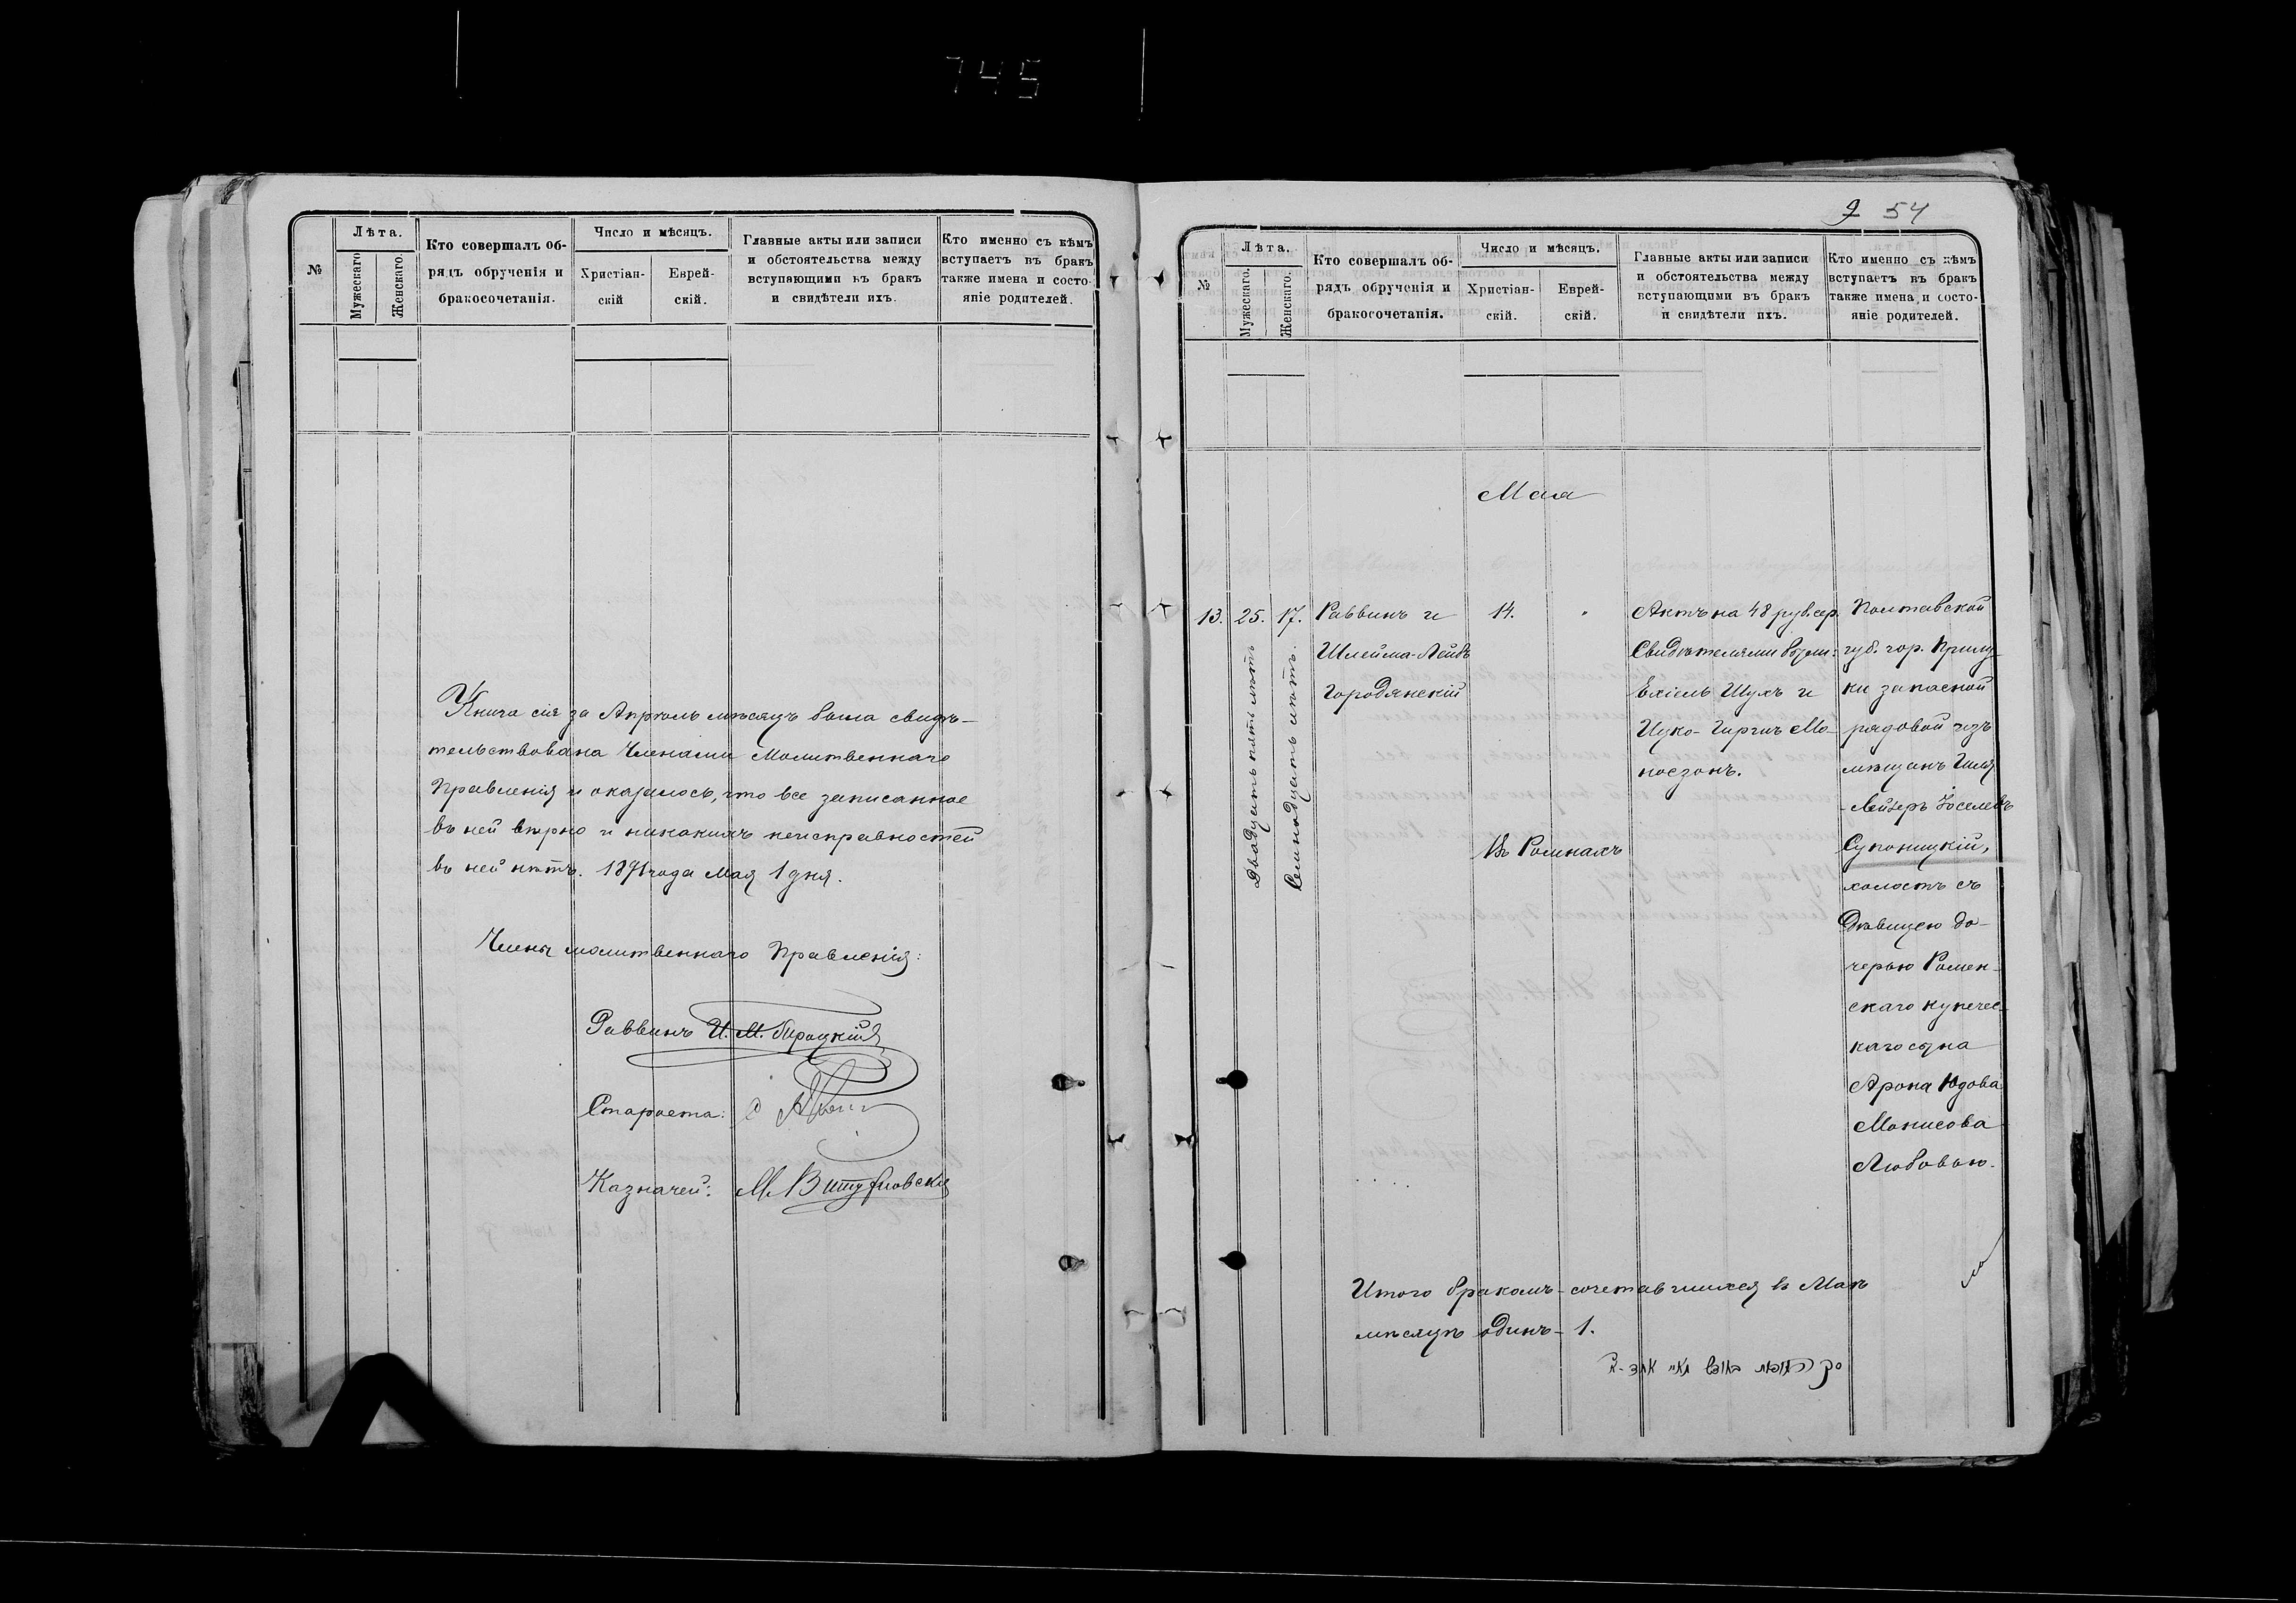 745
№
Лѣта.
Мужескаго
Женскаго.
Кто совершалъ об-
рядъ обрученія и
бракосочетанія.
Число и мѣсяцъ.
Христіан-
скій
Еврей-
скій.
Главные акты или записи
и обстоятельства между
вступающими въ бракъ
и свидѣтели ихъ.
Кто именно съ кѣмъ
вступаетъ въ бракъ
также имена и состо-
яніе родителей.
Книга сія за Апрѣль мѣсяцъ была свидѣ-
тельствована Членами Молитвеннаго
Правленія и оказалось, что все записанное
въ ней вѣрно и никакихъ неисправностей
въ ней нѣтъ. 1891 года Мая 1 дня.
Члены молитвеннаго Правленія:
Раввинъ И. М.
Староста:
Казначей: М.
54
№
Лѣта.
Мужескаго.
Женскаго.
Кто совершалъ об-
рядъ обрученія и
бракосочетанія.
Число и мѣсяцъ.
Христіан-
скій.
Еврей-
скій.
Главные акты или записи
и обстоятельства между
вступающими въ бракъ
и свидѣтели ихъ.
Кто именно съ кѣмъ
вступаетъ въ бракъ
также имена и состо-
яніе родителей.
Мая
13.
25.
Двадцать пять лѣтъ
17.
Семнадцать лѣтъ.
Раввинъ и
Шлейма-Лейбъ
Городянскій
14.
Въ Ромнахъ
Актъ на 48 руб. сер.
Свидѣтелями были:
Ехіель Шухъ и
Ицко-Гиршъ Мо-
носзонъ.
Полтавской
губ. гор. Прилу-
ки запасной
рядовой изъ
мѣщанъ
-Лейзеръ Іоселевъ
Супоницкій,
холостъ съ
Дѣвицею до-
черью Ромен-
скаго купечес-
каго сына
Арона Юдова
Монисова
Любовью.
Итого бракомъ-сочетавшихся въ Маѣ
мѣсяцѣ одинъ- 1.